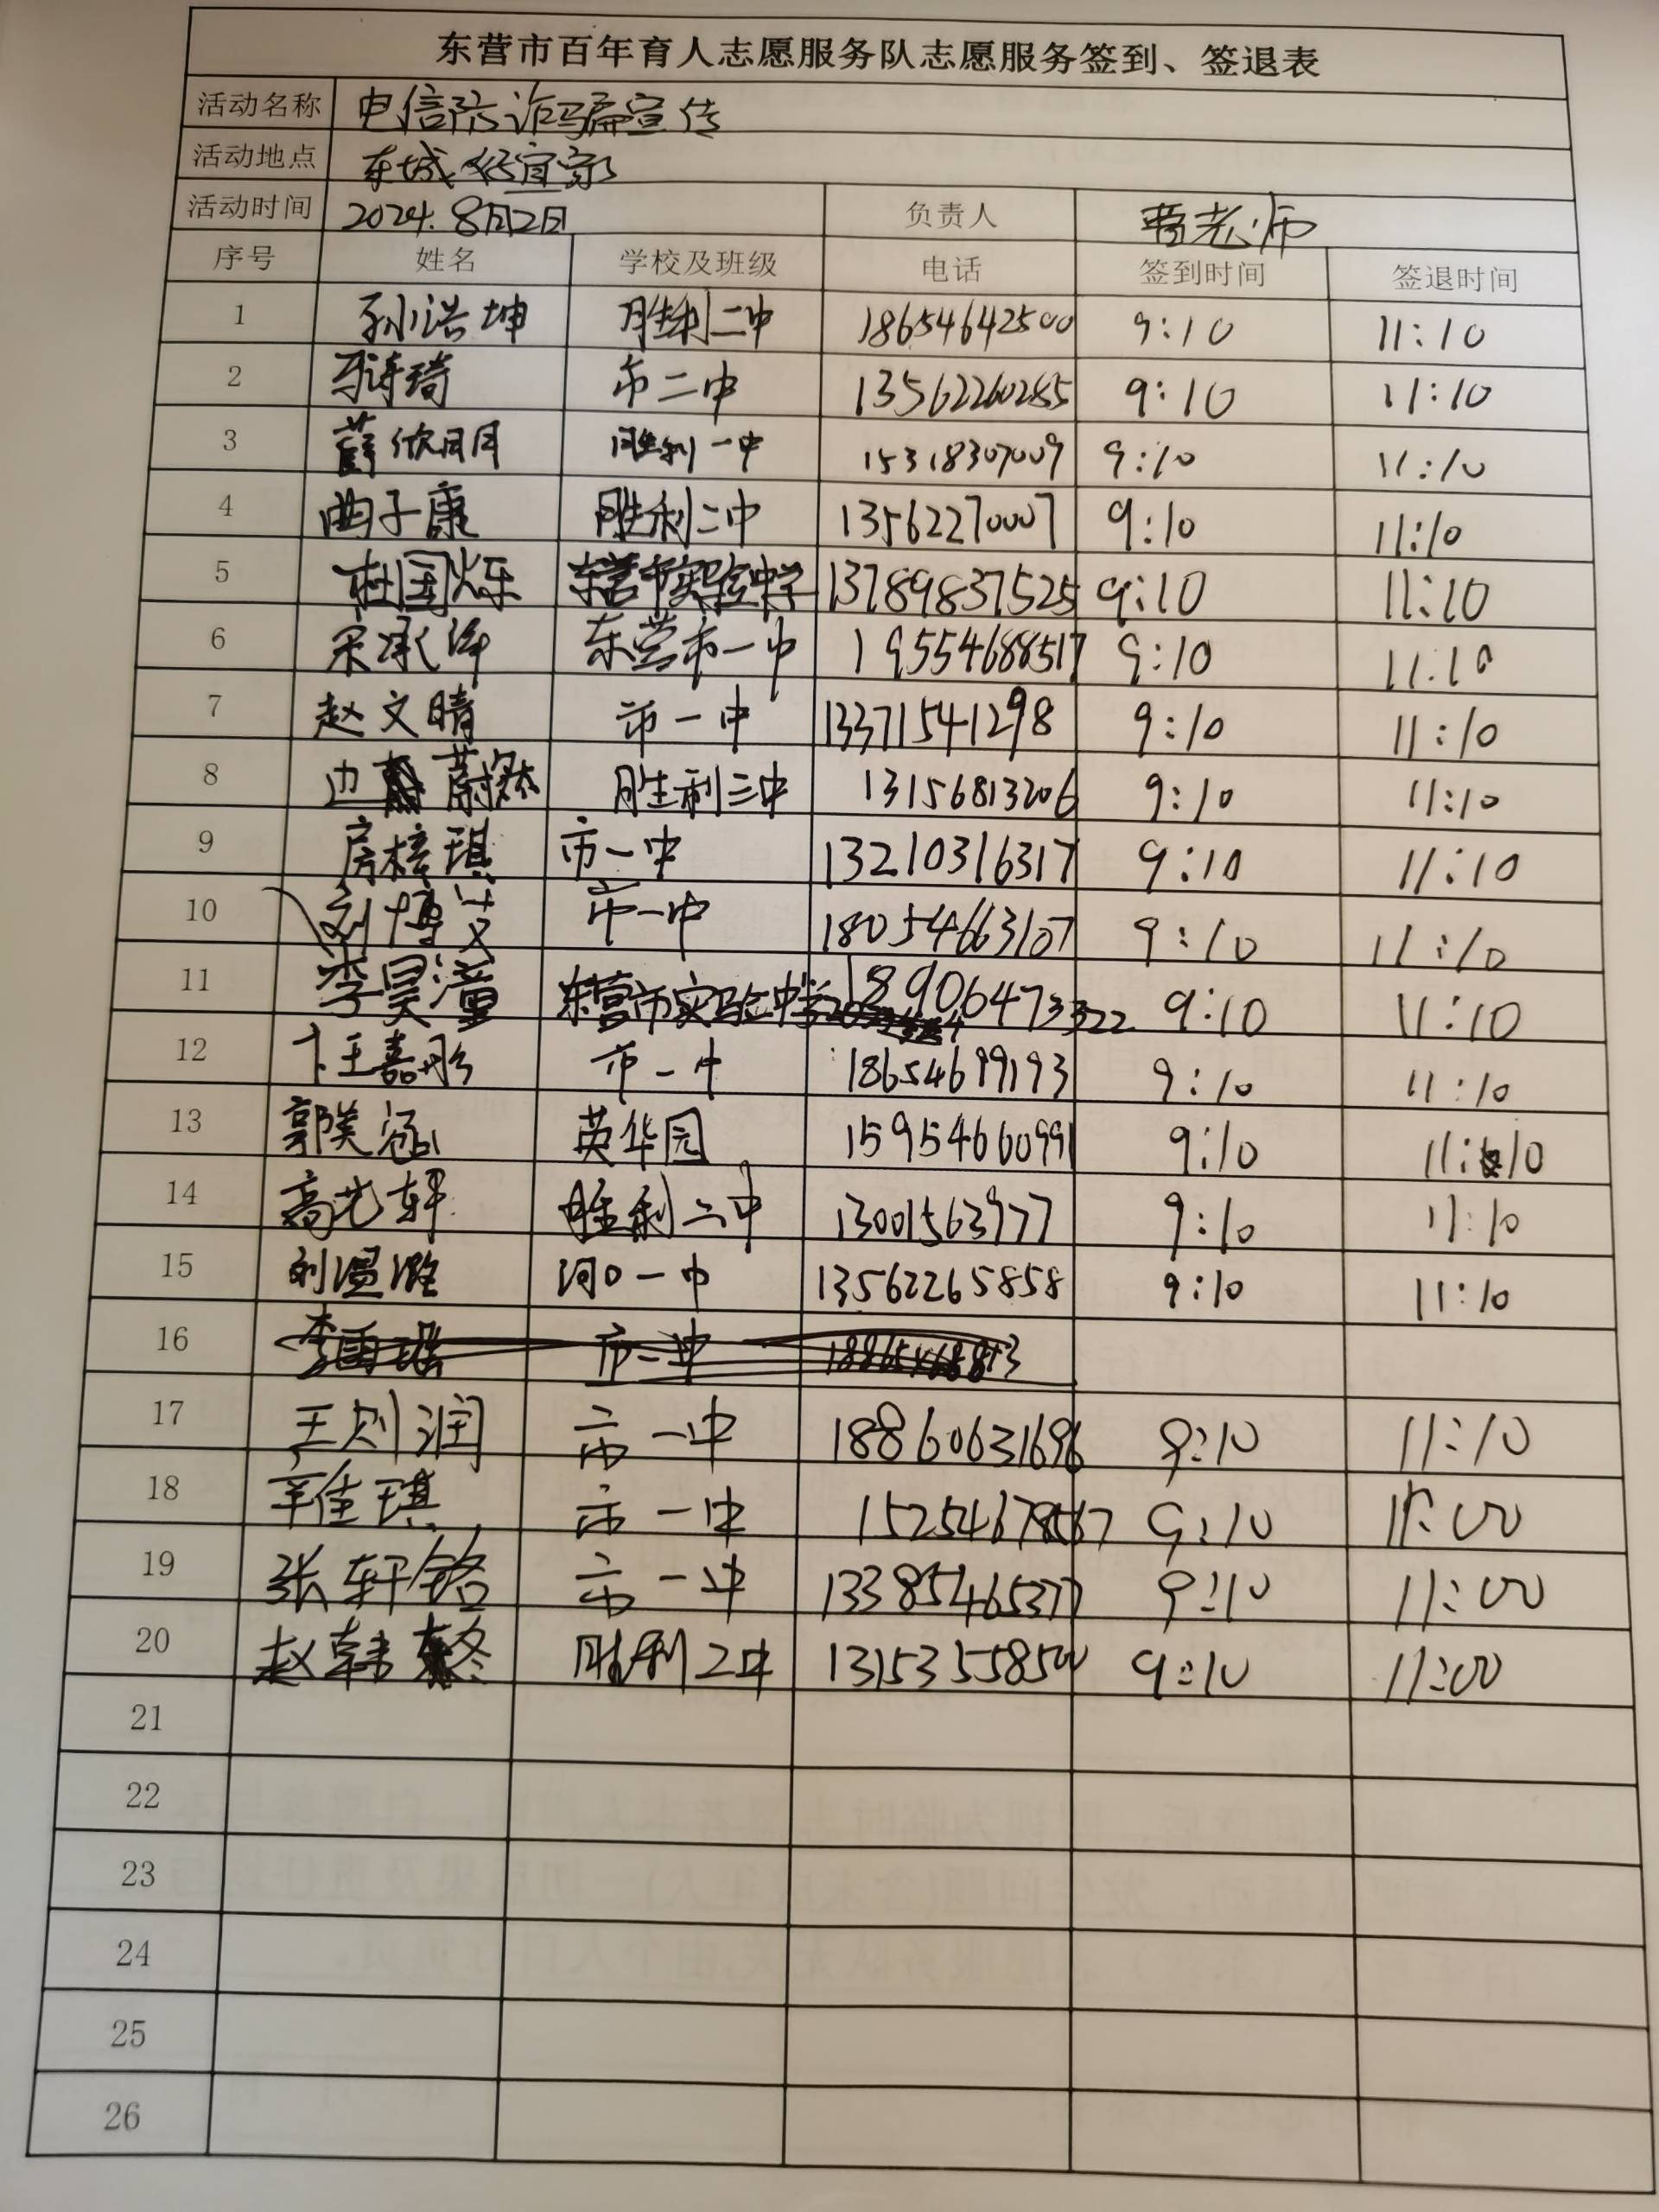 东营市百年育人志愿服务队志愿服务签到、签退表
活动名称 电信防诈骗宣传
活动地点 东城好宜家
活动时间 2024.8月2日 负责人 曹老师
序号 姓名 学校及班级 电话 签到时间 签退时间
1 孙浩坤 胜利二中 18654642500 9:10 11:10
2 马诗琦 市二中 13562260285 9:10 11:10
3 薛欣月月 胜利一中 15318307009 9:10 11:10
4 曲子康 胜利二中 13562270007 9:10 11:10
5 杜国烁 东营市实验中学 13789837525 9:10 11:10
6 宋承泽 东营市一中 19554688517 9:10 11:10
7 赵文晴 市一中 13371541298 9:10 11:10
8 边蔚 胜利三中 13156813206 9:10 11:10
9 房梓琪 市一中 13210316317 9:10 11:10
10 刘博艾 市一中 18054663107 9:10 11:10
11 李昊潼 东营市实验中学 18906473322 9:10 11:10
12 王嘉彤 市一中 18654699193 9:10 11:10
13 郭美涵 英华园 15954660991 9:10 11:10
14 高艺轩 胜利二中 13001563977 9:10 11:10
15 刘温潞 河口一中 13562265858 9:10 11:10
16 市二中
17 王则润 市一中 18860631696 9:10 11:10
18 辛佳琪 市一中 15254678567 9:10 11:00
19 张轩铭 市一中 13385465377 9:10 11:00
20 赵韩 胜利二中 13153558500 9:10 11:00
21
22
23
24
25
26